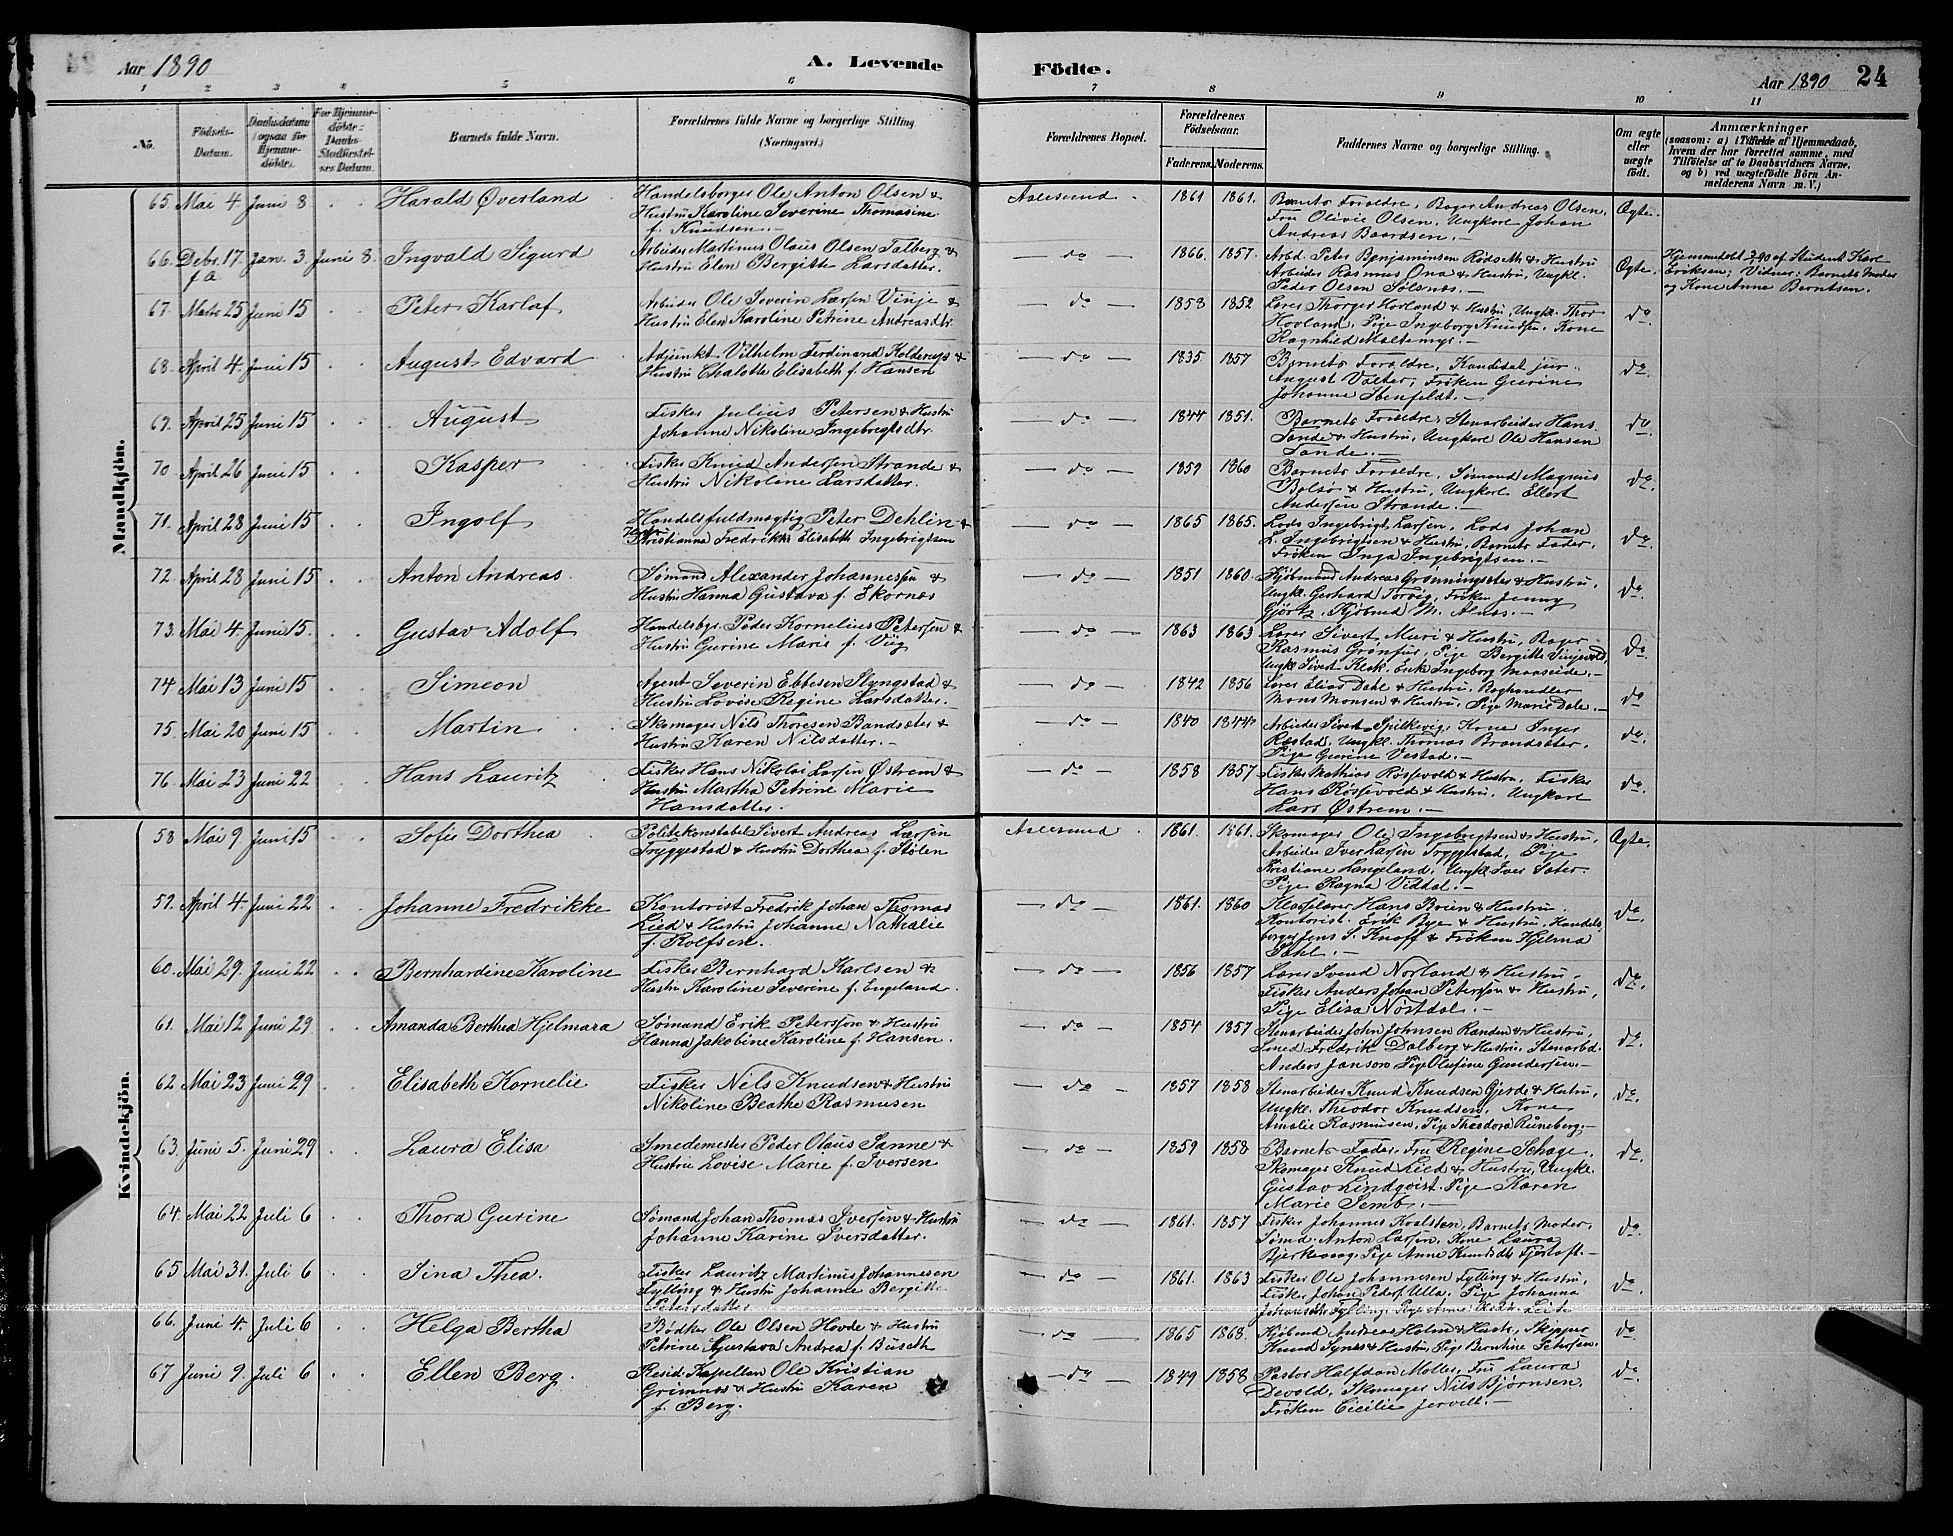 Aar 1890
A. Levende Födte.
Aar 1890 24
1 2 3 4 5 6 7 8 9 10 11
No.
Födsels-Datum.
Daabsdatum (ogsaa för Hjemmedöbte).
For Hjemmedöbte: Daabs-Stadfæstelses Datum.
Barnets fulde Navn.
Forældrenes fulde Navne og borgerlige Stilling (Næringsvei.)
Forældrenes Bopæl.
Forældrenes Födselsaar.
Faderens. Moderens.
Faddernes Navne og borgerlige Stilling.
Om ægte eller uægte födt.
Anmærkninger
(saasom: a) i Tilfælde af Hjemmedaab, hvem der har forrettet samme, med Tilföielse af to Daabsvidners Navne, og b) ved uægtefödte Börn Anmelderens Navn m. V.)
Mandkjön.
65. Mai 4. Juni 8 Harald Øverland Handelsborger Ole Anton Olsen & Aalesund. 1861 1861. Barnets Forældre, Bager Andreas Olsen, Ægte.
Hustru Karoline Severine Thomasine Fru Olivie Olsen, Ungkarl Johan
f. Knudsen. Andreas Baardsen.
66. Debr. 17. Jan. 3. Juni 8. Ingvald Sigurd Arbeider Martinus Olaus Olsen Talberg & do 1866. 1857. Arbd. Peter Benjaminsen Rödseth & Hustru Ægte. Hjemmedøbt 3/1 90 af Student Karl
f. A. Hustru Elen Bergitte Larsdatter. Arbeider Rasmus Ona & Hustru, Ungkl. Eriksen; Vidner: Barnets Moder
Peder Olsen Sølsnæs. og Kone Anna Berntsen.
67. Marts 25 Juni 15 Peter Karlof Arbeider Ole Severin Larsen Vinje & do 1853 1852 Lærer Thorger Hovland & Hustru, Ungk. Thor do
Hustru Elen Karoline Petrine Andreasdtr. Hovland, Pige Ingeborg Knudsen, Kone
Ragnhild
68. April 4. Juni 15 August Edvard Adjunkt Vilhelm Ferdinand Kolderup & do 1835. 1857 Barnets Forældre, Kandidat jur. do.
Hustru Chalotte Elisabeth f. Hansen August Vatter, Frøken Gurine
Johanne Ibenfeldt.
69. April 25 Juni 15 August Fisker Julius Petersen & Hustru do 1844 1851. Barnets Forældre, Stenarbeider Hans do.
Johanne Nikoline Ingebrigtsdtr. Tande & Hustru, Ungkarl Ole Hansen
Tande.
70 April 26 Juni 15 Kasper Fisker Knud Andersen Strande & do 1859 1860 Barnets Forældre, Sømand Magnus do.
Hustru Nikoline Larsdatter. Bolsø & Hustru, Ungkarl Ellert
Andersen Strande.
71. April 28 Juni 15 Ingolf Handelsfuldmægtig Peter Dehlin & do 1865 1865. Lods Ingebrigt Larsen, Lods Johan do.
Hustru Kristianna Fredrikke Elisabeth Ingebrigtsen L. Ingebrigtsen & Hustru, Barnets Fader,
Frøken Inga Ingebrigtsen.
72. April 28 Juni 15 Anton Andreas. Sømand Alexander Johannessen & do 1851 1860. Kjöbmand Andreas Grønningsæter & Hustru, do.
Hustru Hanna Gustava f. Ekornæs Ungk. Gerhard Torvig, Frøken Jenny
Gjørtz, Kjöbmd M. Alnæs.
73. Mai 4. Juni 15. Gustav Adolf Handelsbgr. Peder Kornelius Petersen & do 1863 1863 Lærer Sivert Muri & Hustru, Bager do
Hustru Gurine Marie f. Vig Rasmus Grønfur, Pige Bergitte Vinjevold,
Ungk. Sivert Klok, Enke Ingeborg Monseide.
74 Mai 13 Juni 15 Simeon Agent Severin Ebbesen Slyngstad & do 1842 1856 Lærer Elias Dahl & Hustru, Boghandler do
Hustru Lovise Regine Larsdatter. Mons Monsen & Hustru, Pige Marie Dale.
75. Mai 20 Juni 15 Martin. Skomager Nils Thoresen Bandsæter & do 1840 1844 Arbeider Sivert Spilkevig, Kone Inger do.
Hustru Karen Nilsdatter. Røstad, Ungk. Thomas Brandsæter,
Pige Gurine Vestad.
76. Mai 23 Juni 22 Hans Lauritz Fisker Hans Nikolai Larsen Østrem & do 1858 1857 Fisker Mathias Røssevold & Hustru, Fisker do.
Hustru Martha Petrine Marie Hans Røssevold & Hustru, Ungkarl
Hansdatter. Lars Østrem.
Kvindekjön.
58 Mai 9. Juni 15 Sofie Dorthea Politikonstabel Sivert Andreas Larsen Aalesund. 1861. 1861. Skomager Ole Ingebrigtsen & Hustru, Ægte.
Tryggestad & Hustru Dorthea f. Stølen Arbeider Iver Larsen Tryggestad, Pige
Kristiane Langeland, Ungkl Iver Sæter
Pige Ragna Viddal.
59. April 4. Juni 22 Johanne Fredrikke Kontorist Fredrik Johan Thomas do 1861. 1860 Hans Boien & Hustru, do.
Lied & Hustru Johanne Nathalie Kontorist Erik Bye & Hustru, Handels-
f. Rolfsen. borger Jens S. Knoff & Frøken Hjelma
Dahl.
60. Mai 29. Juni 22 Bernhardine Karoline Fisker Bernhard Karlsen & do 1856 1857 Lærer Svend Norland & Hustru, do.
Hustru Karoline Severine f. Engeland. Fisker Anders Johan Petersen & Hustru,
Pige Elisa Nøstdal.
61. Mai 12 Juni 29 Amanda Berthea Hjelmara Sømand Erik Peterssen & Hustru do 1854 1857 Stenarbeider John Johnsen Randen & Hustru, do.
Hanna Jakobine Karoline f. Hansen. Smed Fredrik Dalberg & Hustru, Stenarbd.
Anders Janson Pige Olufine Gundersen.
62 Mai 23 Juni 29 Elisabeth Kornelie Fisker Nils Knudsen & Hustru do 1857 1858 Stenarbeider Knud Knudsen Gjerde & Hustru, do.
Nikoline Beathe Rasmusen Ungkl. Theodor Knudsen, Kone
Amalie Rasmusen, Pige Theodora Runeberg.
63. Juni 5. Juni 29 Laura Elisa Smedemester Peder Olaus Sanne & do 1859 1858 Barnets Fader, Fru Regine Schage, do.
Hustru Lovise Marie f. Iversen Skomager Knud Lied & Hustru, Ungkl.
Gustav Lindqvist, Pige Karen
Marie Semb.
64. Mai 22 Juli 6 Thora Gurine Sømand Johan Thomas Iversen & Hustru do 1861. 1857 Fisker Johannes Kvalsten, Barnets Moder, do.
Johanne Karine Iversdatter. Sømd. Anton Larsen, Kone Laura
Bjerkevaag, Pige Anne Knudsdtr Fjørtoft.
65 Mai 31. Juli 6 Sina Thea. Fisker Lauritz Martinus Johannesen do 1861. 1863 Fisker Ole Johannesen Fylling & Hustru, do.
Fylling & Hustru Johanne Bergitte Fisker Johan Peders. Ulla, Pige Johanna
Petersdatter
66. Juni 4. Juli 6 Helga Bertha Bødker Ole Olsen Hovde & Hustru do 1865 1868. Kjöbmd Andreas Holm & Hustr, Skipper do
Petrine Gustava Andrea f. Buseth Knud Synes & Hustru, Pige Berntine Petersen.
67 Juni 9. Juli 6 Ellen Berg. Resid. Kapellan Ole Kristian do 1849 1858 Pastor Halfdan Møller, Fru Laura do.
Grimnæs & Hustru Karen Devold, Skomager Nils Bjørnsen,
f. Berg. Frøken Cicilie Jervell.